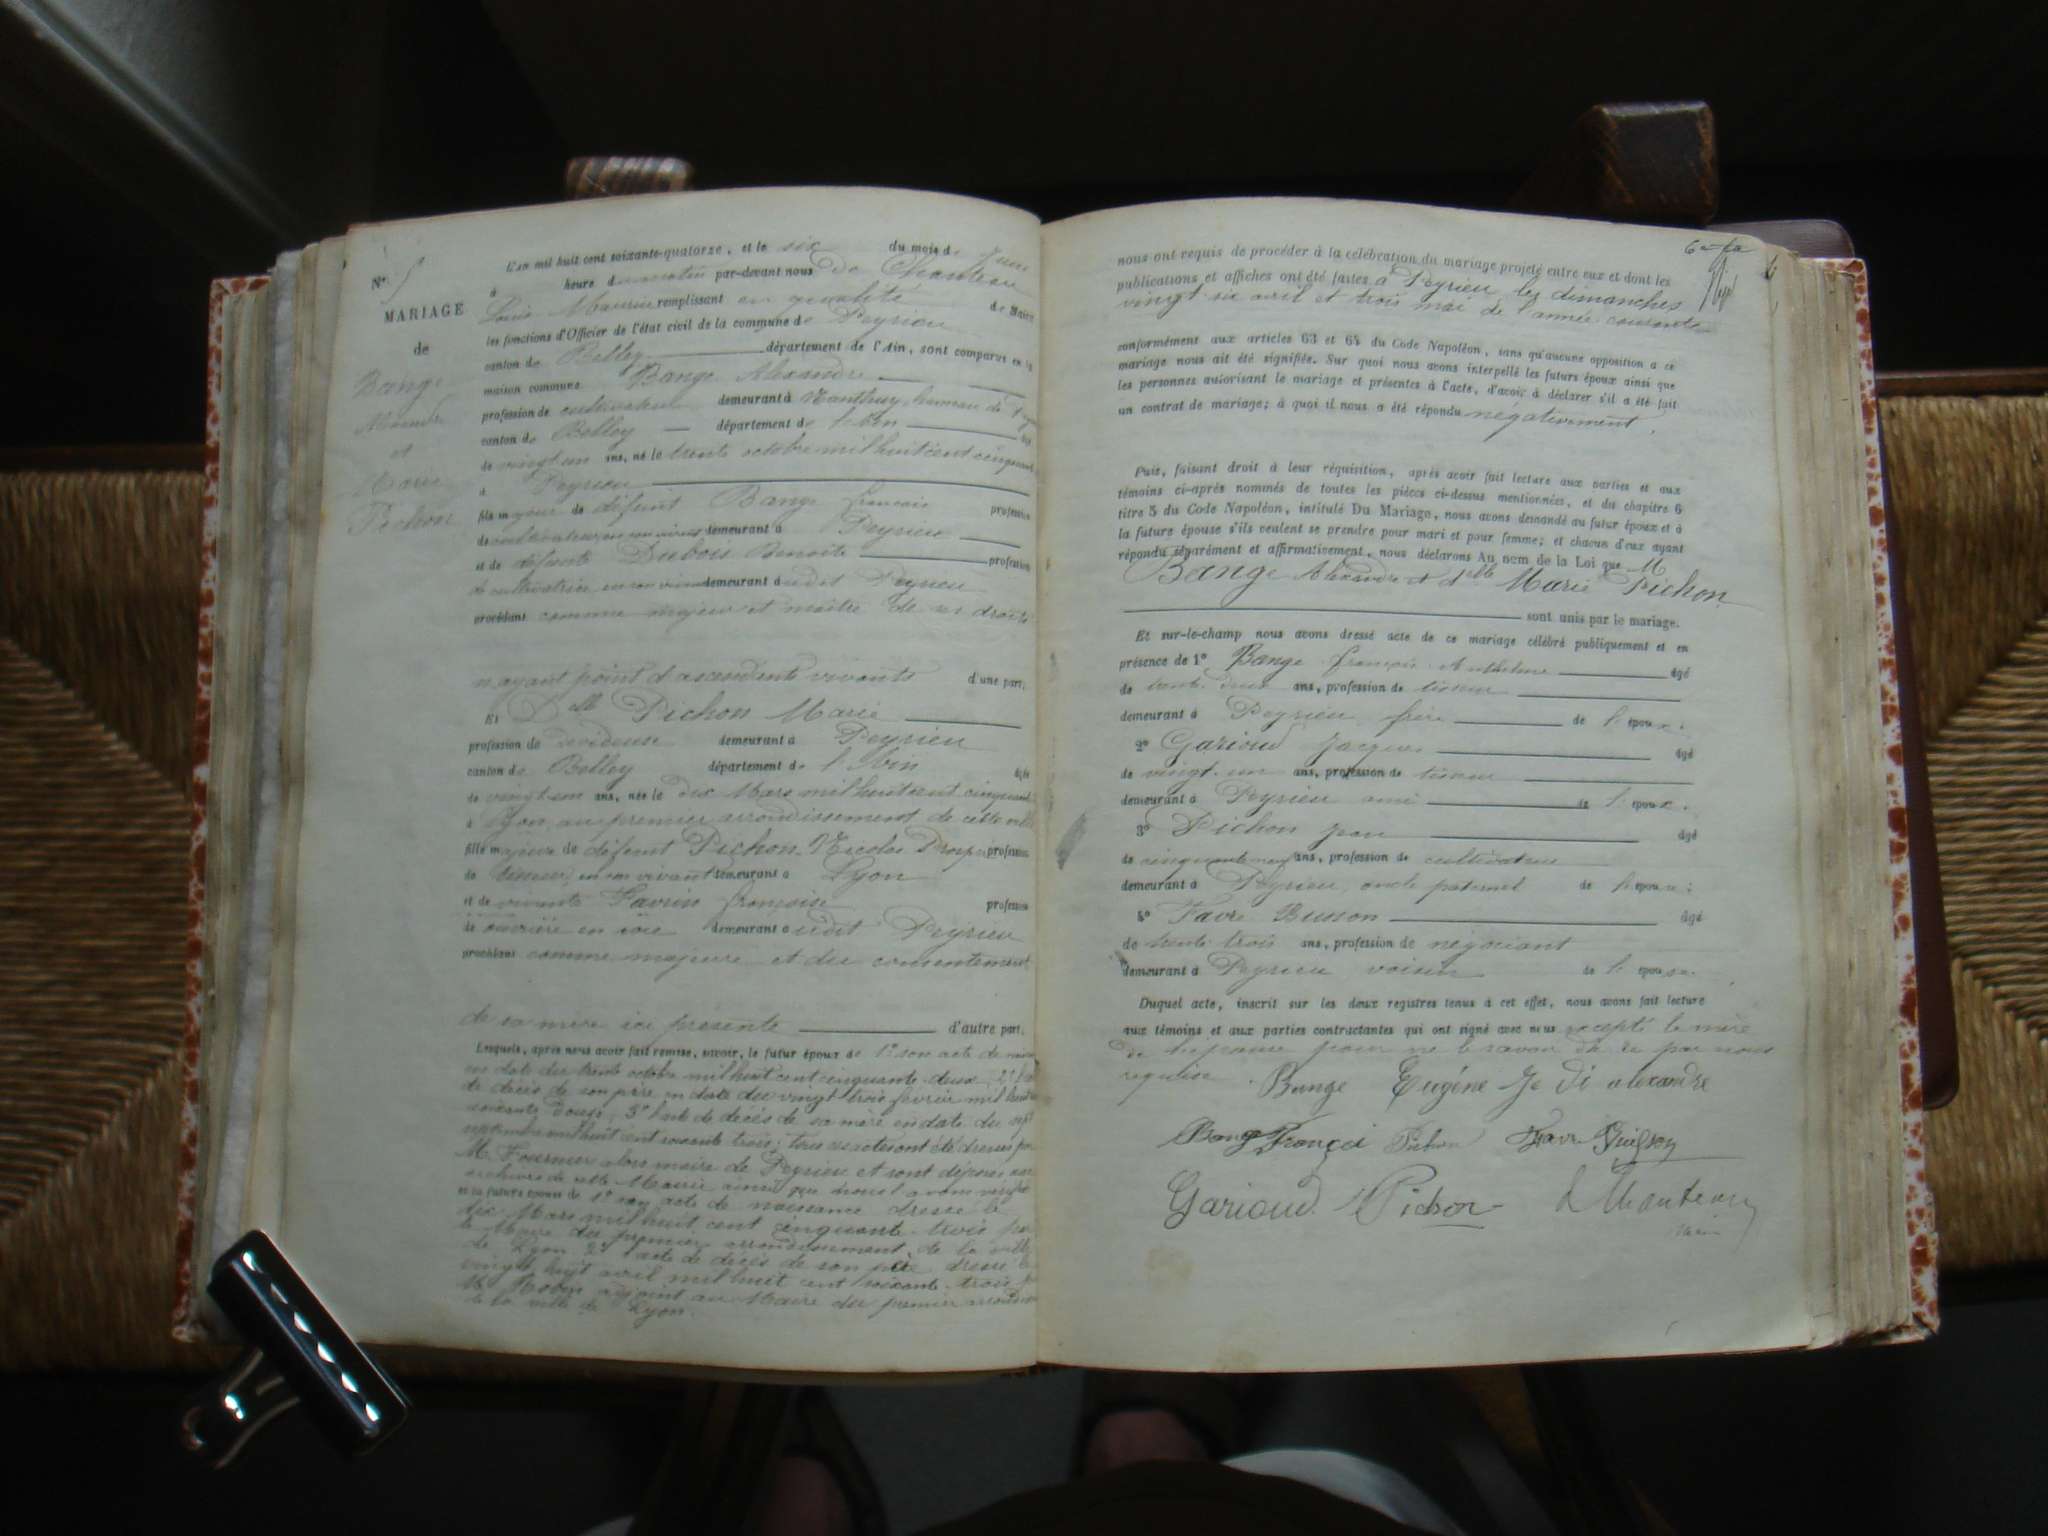 N° 5
MARIAGE
de
Bange
Alexandre
et
Marie
Pichon
L'an mil huit cent soixante-quatorze, et le six du mois de Juin
à heure du matin par-devant nous De Chanteau
Louis Maurice remplissant en qualité de Maire
les fonctions d'Officier de l'état civil de la commune de Peyrieu
canton de Belley département de l'Ain, sont comparus en la
maison commune Bange Alexandre
profession de cultivateur demeurant à Nanthuy, hameau de
canton de Belley département de l'Ain âgé
de vingt un ans, né le trente octobre mil huit cent cinquante
à Peyrieu
fils majeur de défunt Bange françois profession
de cultivateur en son vivant demeurant à Peyrieu
et de défunte Dubois Benoite profession
de cultivatrice en son vivant demeurant à udit Peyrieu
procédant comme majeur et maitre de ses droits
n'ayant point d'ascendants vivants d'une part.
Et Delle Pichon Marie
profession de Devideuse demeurant à Peyrieu
canton de Belley département de l'Ain âgée
de vingt-un ans, née le dix Mars mil huit cent cinquante
à Lyon, au premier arrondissement de cette ville
fille majeure de défunt Pichon Nicolas profession
de tisseur, en son vivant demeurant à Lyon
et de vivante Favrin françoise profession
de ouvrière en soie demeurant à udit Peyrieu
procédant comme majeure et du consentement
de sa mère ici présente d'autre part.
Lesquels, après nous avoir fait remise, savoir, le futur époux de 1° son acte de
en date du trente octobre mil huit cent cinquante-deux; 2°
de décès de son père en date du vingt trois février mil huit
soixante douze; 3° l'acte de décès de sa mère en date du
septembre mil huit cent soixante trois; tous ces actes ont été dressés par
M. Fournier alors maire de Peyrieu et sont déposés aux
archives de cette Mairie ainsi que nous l'avons vérifié
et la future épouse de 1° son acte de naissance dressé le
dix Mars mil huit cent cinquante-trois par
le Maire du premier arrondissement de la ville
de Lyon 2° l'acte de décès de son père dressé le
vingt huit avril mil huit cent soixante-trois par
M. Robin adjoint au Maire du premier
de la ville de Lyon.
nous ont requis de procéder à la célébration du mariage projeté entre eux et dont les
publications et affiches ont été faites à Peyrieu les dimanches
vingt six avril et trois mai de l'année courante
conformément aux articles 63 et 64 du Code Napoléon, sans qu'aucune opposition à ce
mariage nous ait été signifiée. Sur quoi nous avons interpellé les futurs époux ainsi que
les personnes autorisant le mariage et présentes à l'acte, d'avoir à déclarer s'il a été fait
un contrat de mariage; à quoi il nous a été répondu négativement.
Puis, faisant droit à leur réquisition, après avoir fait lecture aux parties et aux
témoins ci-après nommés de toutes les pièces ci-dessus mentionnées, et du chapitre 6
titre 5 du Code Napoléon, intitulé Du Mariage, nous avons demandé au futur époux et à
la future épouse s'ils veulent se prendre pour mari et pour femme; et chacun d'eux ayant
répondu séparément et affirmativement, nous déclarons Au nom de la Loi que M
Bange Alexandre et Delle Marie Pichon
sont unis par le mariage.
Et sur-le-champ nous avons dressé acte de ce mariage célébré publiquement et en
présence de 1° Bange françois Anthelme âgé
de trente deux ans, profession de tisseur
demeurant à Peyrieu, frère de l'époux.
2° Garioud Jacques âgé
de vingt-un ans, profession de tisseur
demeurant à Peyrieu ami de l'époux.
3° Pichon Jean âgé
de cinquante ans, profession de cultivateur
demeurant à Peyrieu, oncle paternel de l'épouse.
4° Favre Buisson âgé
de trente-trois ans, profession de négociant
demeurant à Peyrieu voisin de l'épouse.
Duquel acte, inscrit sur les deux registres tenus à cet effet, nous avons fait lecture
aux témoins et aux parties contractantes qui ont signé avec nous excepté la mère
de l'épouse pour ne le savoir de ce par nous
requise.
Bange Eugène Je di alexandre
Bange Françoi Pichon Favre Buisson
Garioud Pichon L Chanteau
Maire